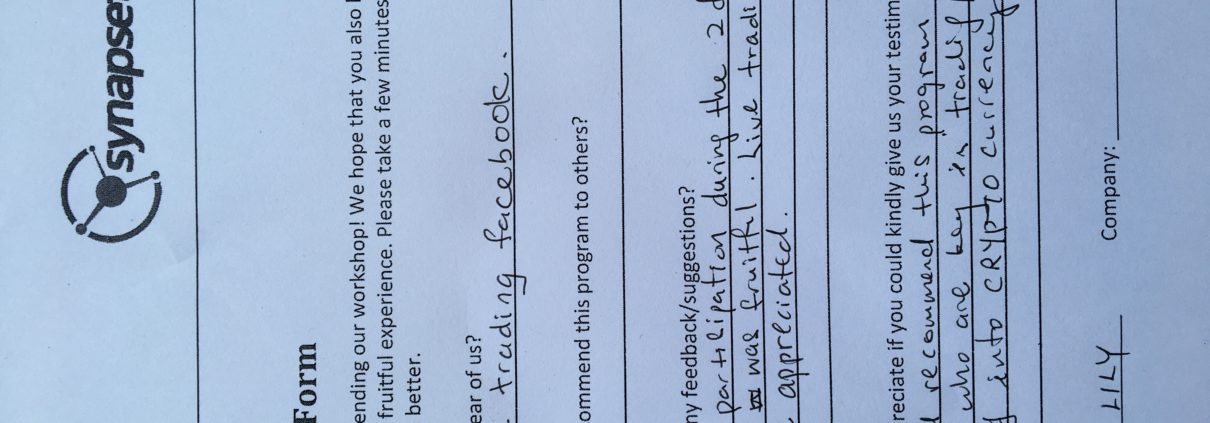 synapse
Form
ending our workshop! We hope that you also
fruitful experience. Please take a few minutes
better.
ear of us?
trading facebook.
ommend this program to others?
ny feedback/suggestions?
partilipation during the 2 d
was fruitful. Live tradi
appreciated.
reciate if you could kindly give us your testim
recommend this program
who are key in tradif
into CRYPTO currency
LILY Company: